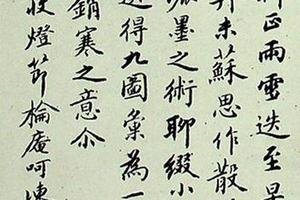 正雨雪迭至昼
未蘇思作散
墨之術聊綴小
逸得九圖彙為一
銷寒之意尒
收燈節棆庵呵凍